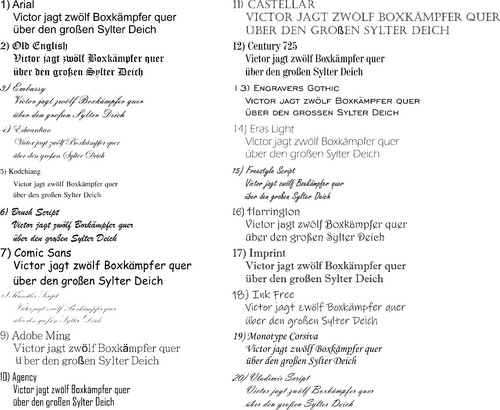 1) Arial
Victor jagt zwölf Boxkämpfer quer
über den großen Sylter Deich
2) Old English
Victor jagt zwölf Boxkämpfer quer
über den großen Sylter Deich
3) Embassy
Victor jagt zwölf Boxkämpfer quer
über den großen Sylter Deich
4) Edwardian
Victor jagt zwölf Boxkämpfer quer
über den großen Sylter Deich
5) Kodchiang
Victor jagt zwölf Boxkämpfer quer
über den großen Sylter Deich
6) Brush Script
Victor jagt zwölf Boxkämpfer quer
über den großen Sylter Deich
7) Comic Sans
Victor jagt zwölf Boxkämpfer quer
über den großen Sylter Deich
8) Künstler Script
Victor jagt zwölf Boxkämpfer quer
über den großen Sylter Deich
9) Adobe Ming
Victor jagt zwölf Boxkämpfer quer
über den großen Sylter Deich
10) Agency
Victor jagt zwölf Boxkämpfer quer
über den großen Sylter Deich
11) CASTELLAR
VICTOR JAGT ZWÖLF BOXKÄMPFER QUER
ÜBER DEN GROßEN SYLTER DEICH
12) Century 725
Victor jagt zwölf Boxkämpfer quer
über den großen Sylter Deich
13) Engravers Gothic
Victor jagt zwölf Boxkämpfer quer
über den grossen Sylter Deich
14) Eras Light
Victor jagt zwölf Boxkämpfer quer
über den großen Sylter Deich
15) Freestyle Script
Victor jagt zwölf Boxkämpfer quer
über den großen Sylter Deich
16) Harrington
Victor jagt zwölf Boxkämpfer quer
über den großen Sylter Deich
17) Imprint
Victor jagt zwölf Boxkämpfer quer
über den großen Sylter Deich
18) Ink Free
Victor jagt zwölf Boxkämpfer quer
über den großen Sylter Deich
19) Monotype Corsiva
Victor jagt zwölf Boxkämpfer quer
über den großen Sylter Deich
20) Vladimir Script
Victor jagt zwölf Boxkämpfer quer
über den großen Sylter Deich